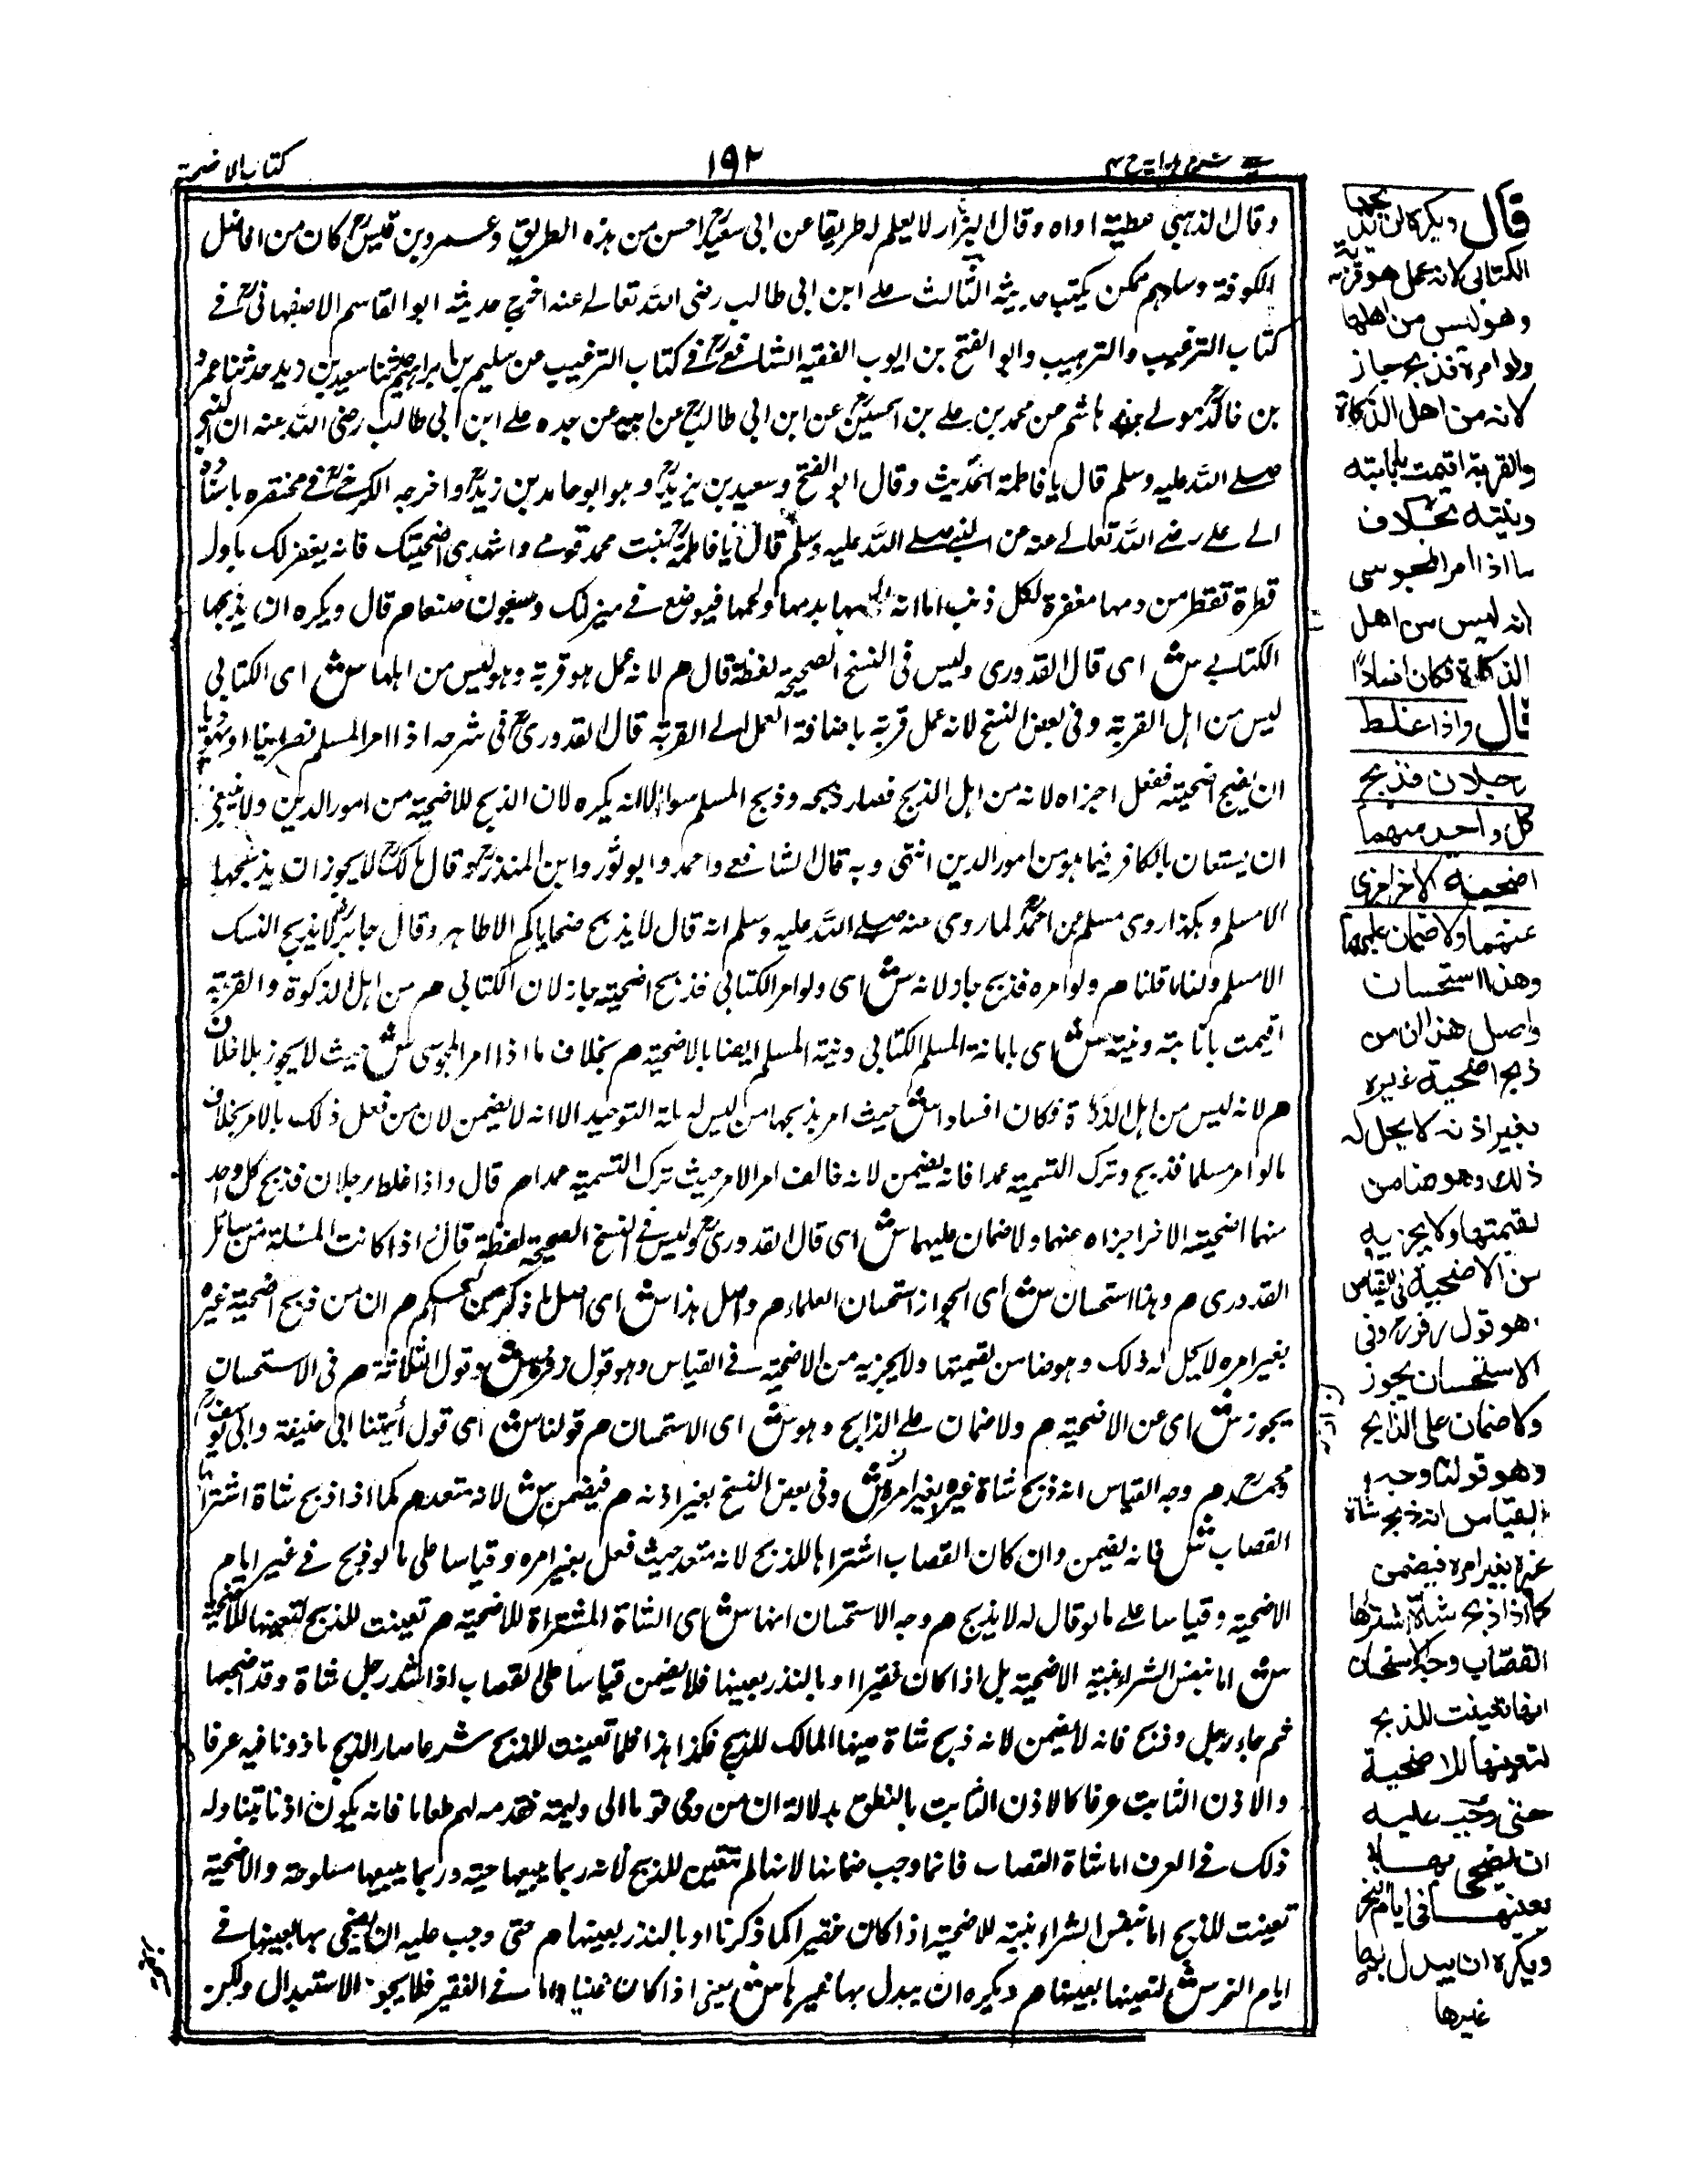 كتاب الاضحية
١٩٢
وقال الذهبي عطية اواه وقال البزار لا يعلم له طريقا عن ابي سعيد احسن من هذه الطريق وعمرو بن قيس كان من افاضل
الكوفة وسادهم ممكن يكتب حديثه الثالث علي ابن ابي طالب رضى الله تعالى عنه اخرج حديثه ابو القاسم الاصفهاني في
كتاب الترغيب والترهيب وابو الفتح بن ايوب الفقيه الشافعي في كتاب الترغيب عن سليم بن ابراهيم حدثنا سعيد بن زيد حدثنا عمرو
بن خالد مولى بني هاشم عن محمد بن علي بن الحسين عن ابن ابي طالب عن ابيه عن جده علي ابن ابي طالب رضى الله عنه ان النبي
صلى الله عليه وسلم قال يا فاطمة الحديث وقال ابو الفتح وسعيد بن يزيد وهو ابو حامد بن زيد واخرجه الكرخي في مختصره باسناده
الى علي رضى الله تعالى عنه عن النبي صلى الله عليه وسلم قال يا فاطمة بنت محمد قومي واشهدى اضحيتك فانه يغفر لك باول
قطرة تقطر من دمها مغفرة لكل ذنب اما انه يجاء بها بدمها ولحمها فيوضع في ميزانك وسبعون ضعفا م قال ويكره ان يذبحها
الكتابي ش اى قال القدورى وليس فى النسخ الصحيحة لفظة قال م لانه عمل هو قربة وهو ليس من اهلها ش اى الكتابي
ليس من اهل القربة وفى بعض النسخ لانه عمل قربة باضافة العمل الى القربة قال القدورى فى شرحه اذا امر المسلم نصرانيا او يهوديا
ان يذبح اضحيته ففعل اجزاه لانه من اهل الذبح فصار ذبحه وذبح المسلم سواء الا انه يكره لان الذبح للاضحية من امور الدين ولا ينبغي
ان يستعان بالكافر فيما هو من امور الدين انتهى وبه قال الشافعي واحمد وابو ثور وابن المنذر وقال مالك لا يجوز ان يذبحها
الا مسلم وهكذا روى مسلم عن احمد لما روى عنه صلى الله عليه وسلم انه قال لا يذبح ضحاياكم الا طاهر وقال جابر لا يذبح النسك
الا مسلم ولنا ما قلنا م ولو امره فذبح جاز لانه ش اى ولو امر الكتابي فذبح اضحيته جاز لان الكتابي م من اهل الذكوة والقربة
اقيمت بانابته ونيته ش اى بانابة المسلم الكتابي ونية المسلم ايضا بالاضحية م بخلاف ما اذا امر المجوسى ش حيث لا يجوز بلا خلاف
م لانه ليس من اهل الذكاة فكان افسادا ش حيث امر بذبحها من ليس له ملة التوحيد الا انه لا يضمن لان من فعل ذلك بالامر بخلاف
ما لو امر مسلما فذبح وترك التسمية عمدا فانه يضمن لانه خالف امر الامر حيث ترك التسمية عمدا م قال واذا غلط رجلان فذبح كل واحد
منهما اضحية الاخر اجزاه عنهما ولا ضمان عليهما ش اى قال القدورى وليس في النسخ الصحيحة لفظة قال اذا كانت المسئلة من مسائل
القدورى م وهذا استحسان ش اى الجواز استحسان العلماء م واصل هذا ش اى اصل ما ذكر من الحكم م ان من ذبح اضحية غيره
بغير امره لا يحل له ذلك وهو ضامن لقيمتها ولا يجزيه من الاضحية في القياس وهو قول زفر ش وقول الثلاثة م فى الاستحسان
يجوز ش اى عن الاضحية م ولا ضمان على الذابح وهو ش اى الاستحسان م قولنا ش اى قول أئمتنا ابى حنيفة وابى يوسف
ومحمد م وجه القياس انه ذبح شاة غيره بغير امره ش وفى بعض النسخ بغير اذنه م فيضمن ش لانه متعد م كما اذا ذبح شاة اشتراها
القصاب ش فانه يضمن وان كان القصاب اشتراها للذبح لانه متعد حيث فعل بغير امره وقياسا على ما لو ذبح في غير ايام
الاضحية وقياسا على ما لو قال له لا يذبح م وجه الاستحسان انها ش اى الشاة المشتراة للاضحية م تعينت للذبح لتعينها للاضحية
ش اما بنفس الشراء بنية الاضحية بل اذا كان فقيرا او بالنذر بعينها فلا يضمن قياسا على القصاب اذا شد رجل شاة وقد اضجعها
ثم جاء رجل وذبح فانه لا يضمن لانه ذبح شاة عينها المالك للذبح فكذا هذا فلما تعينت للذبح شرعا صار الذبح ماذونا فيه عرفا
والاذن الثابت عرفا كالاذن الثابت بالنطق بدلالة ان من دعى قوما الى وليمة فقدمه لهم طعاما فانه يكون اذنا بتناوله
ذلك في العرف اما شاة القصاب فانما وجب ضمانها لانها لم تتعين للذبح لانه ربما يبيعها حية وربما يبيعها مسلوخة والاضحية
تعينت للذبح اما بنفس الشراء بنية للاضحية اذا كان فقيرا كما ذكرنا او بالنذر بعينها م حتى وجب عليه ان يضحى بها بعينها في
ايام النحر ش لتعينها بعينها م ويكره ان يبدل بها غيرها ش يعنى اذا كان غنيا واما في الفقير فلا يجوز الاستبدال ولكن
قال ويكره ان يذبحها
الكتابي لانه عمل هو قربة
وهو ليس من اهلها
ولو امره فذبح جاز
لانه من اهل الذكاة
والقربة اقيمت بانابته
ونيته بخلاف
ما اذا امر المجوسى
لانه ليس من اهل
الذكاة فكان افسادًا
قال واذا غلط
رجلان فذبح
كل واحد منهما
اضحية الاخر اجزى
عنهما ولا ضمان عليهما
وهذا استحسان
واصل هذا ان من
ذبح اضحية غيره
بغير اذنه لا يحل له
ذلك وهو ضامن
لقيمتها ولا يجزيه
من الاضحية فى القياس
وهو قول زفر وفى
الاستحسان يجوز
ولا ضمان على الذابح
وهو قولنا وجه
القياس انه ذبح شاة
غيره بغير امره فيضمن
كما اذا ذبح شاة اشتراها
القصاب وجه الاستحسان
انها تعينت للذبح
لتعينها للاضحية
حتى وجب عليه
ان يضحى بها
بعينها فى ايام النحر
ويكره ان يبدل بها
غيرها